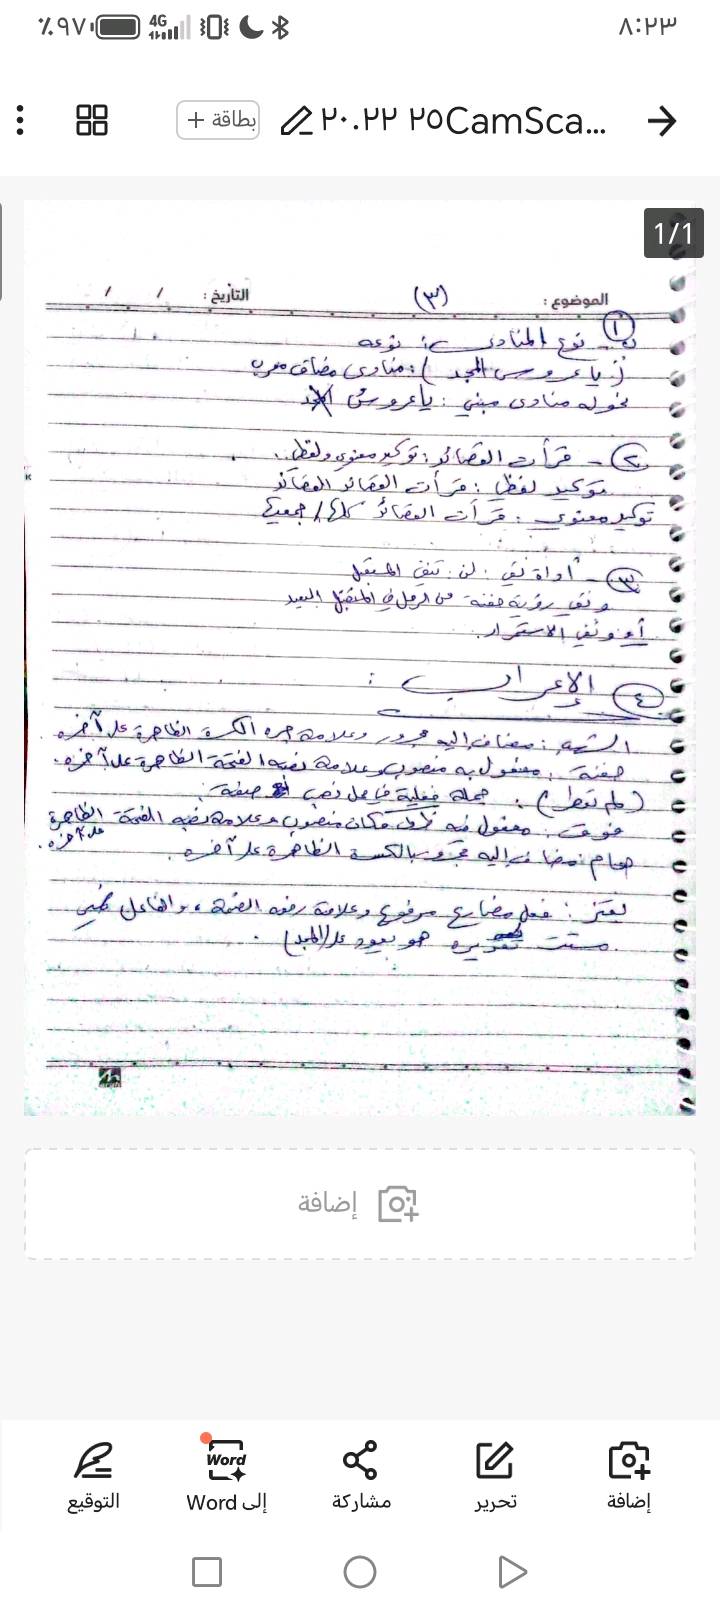 ٨:٢٣
٪٩٧
4G
CamSca...٢٠.٢٢ ٢٥
بطاقة +
1/1
الموضوع :
(٣)
التاريخ : / /
١ - نوع المنادى : نوعه
(يا عروس المجد) : منادى مضاف معرب
نحوله منادى مبني : يا عروسُ
٢ - قرأت القصائد : توكيد معنوي ولفظي..
توكيد لفظي : قرأت القصائد القصائد
توكيد معنوي : قرأت القصائد كلها / جميعها
٣ - أداة نفي : لن : تنفي المستقبل
ونفي رؤية حفنة من الرمل في المستقبل البعيد
أو ونفي الاستمرار.
٤ الإعراب :
: مضاف إليه مجرور وعلامة جره الكسرة الظاهرة على آخره
حفنة : مفعول به منصوب وعلامة نصبه الفتحة الظاهرة على آخره.
(لم تعطر) : جملة فعلية في محل نصب صفة.
فوق : مفعول فيه ظرف مكان منصوب وعلامة نصبه الفتحة الظاهرة على آخره.
: مضاف إليه مجرور بالكسرة الظاهرة على آخره.
: فعل مضارع مرفوع وعلامة رفعه الضمة، والفاعل ضمير
مستتر تقديره هو يعود على (المجد).
إضافة
إضافة
تحرير
مشاركة
Word
إلى Word
التوقيع